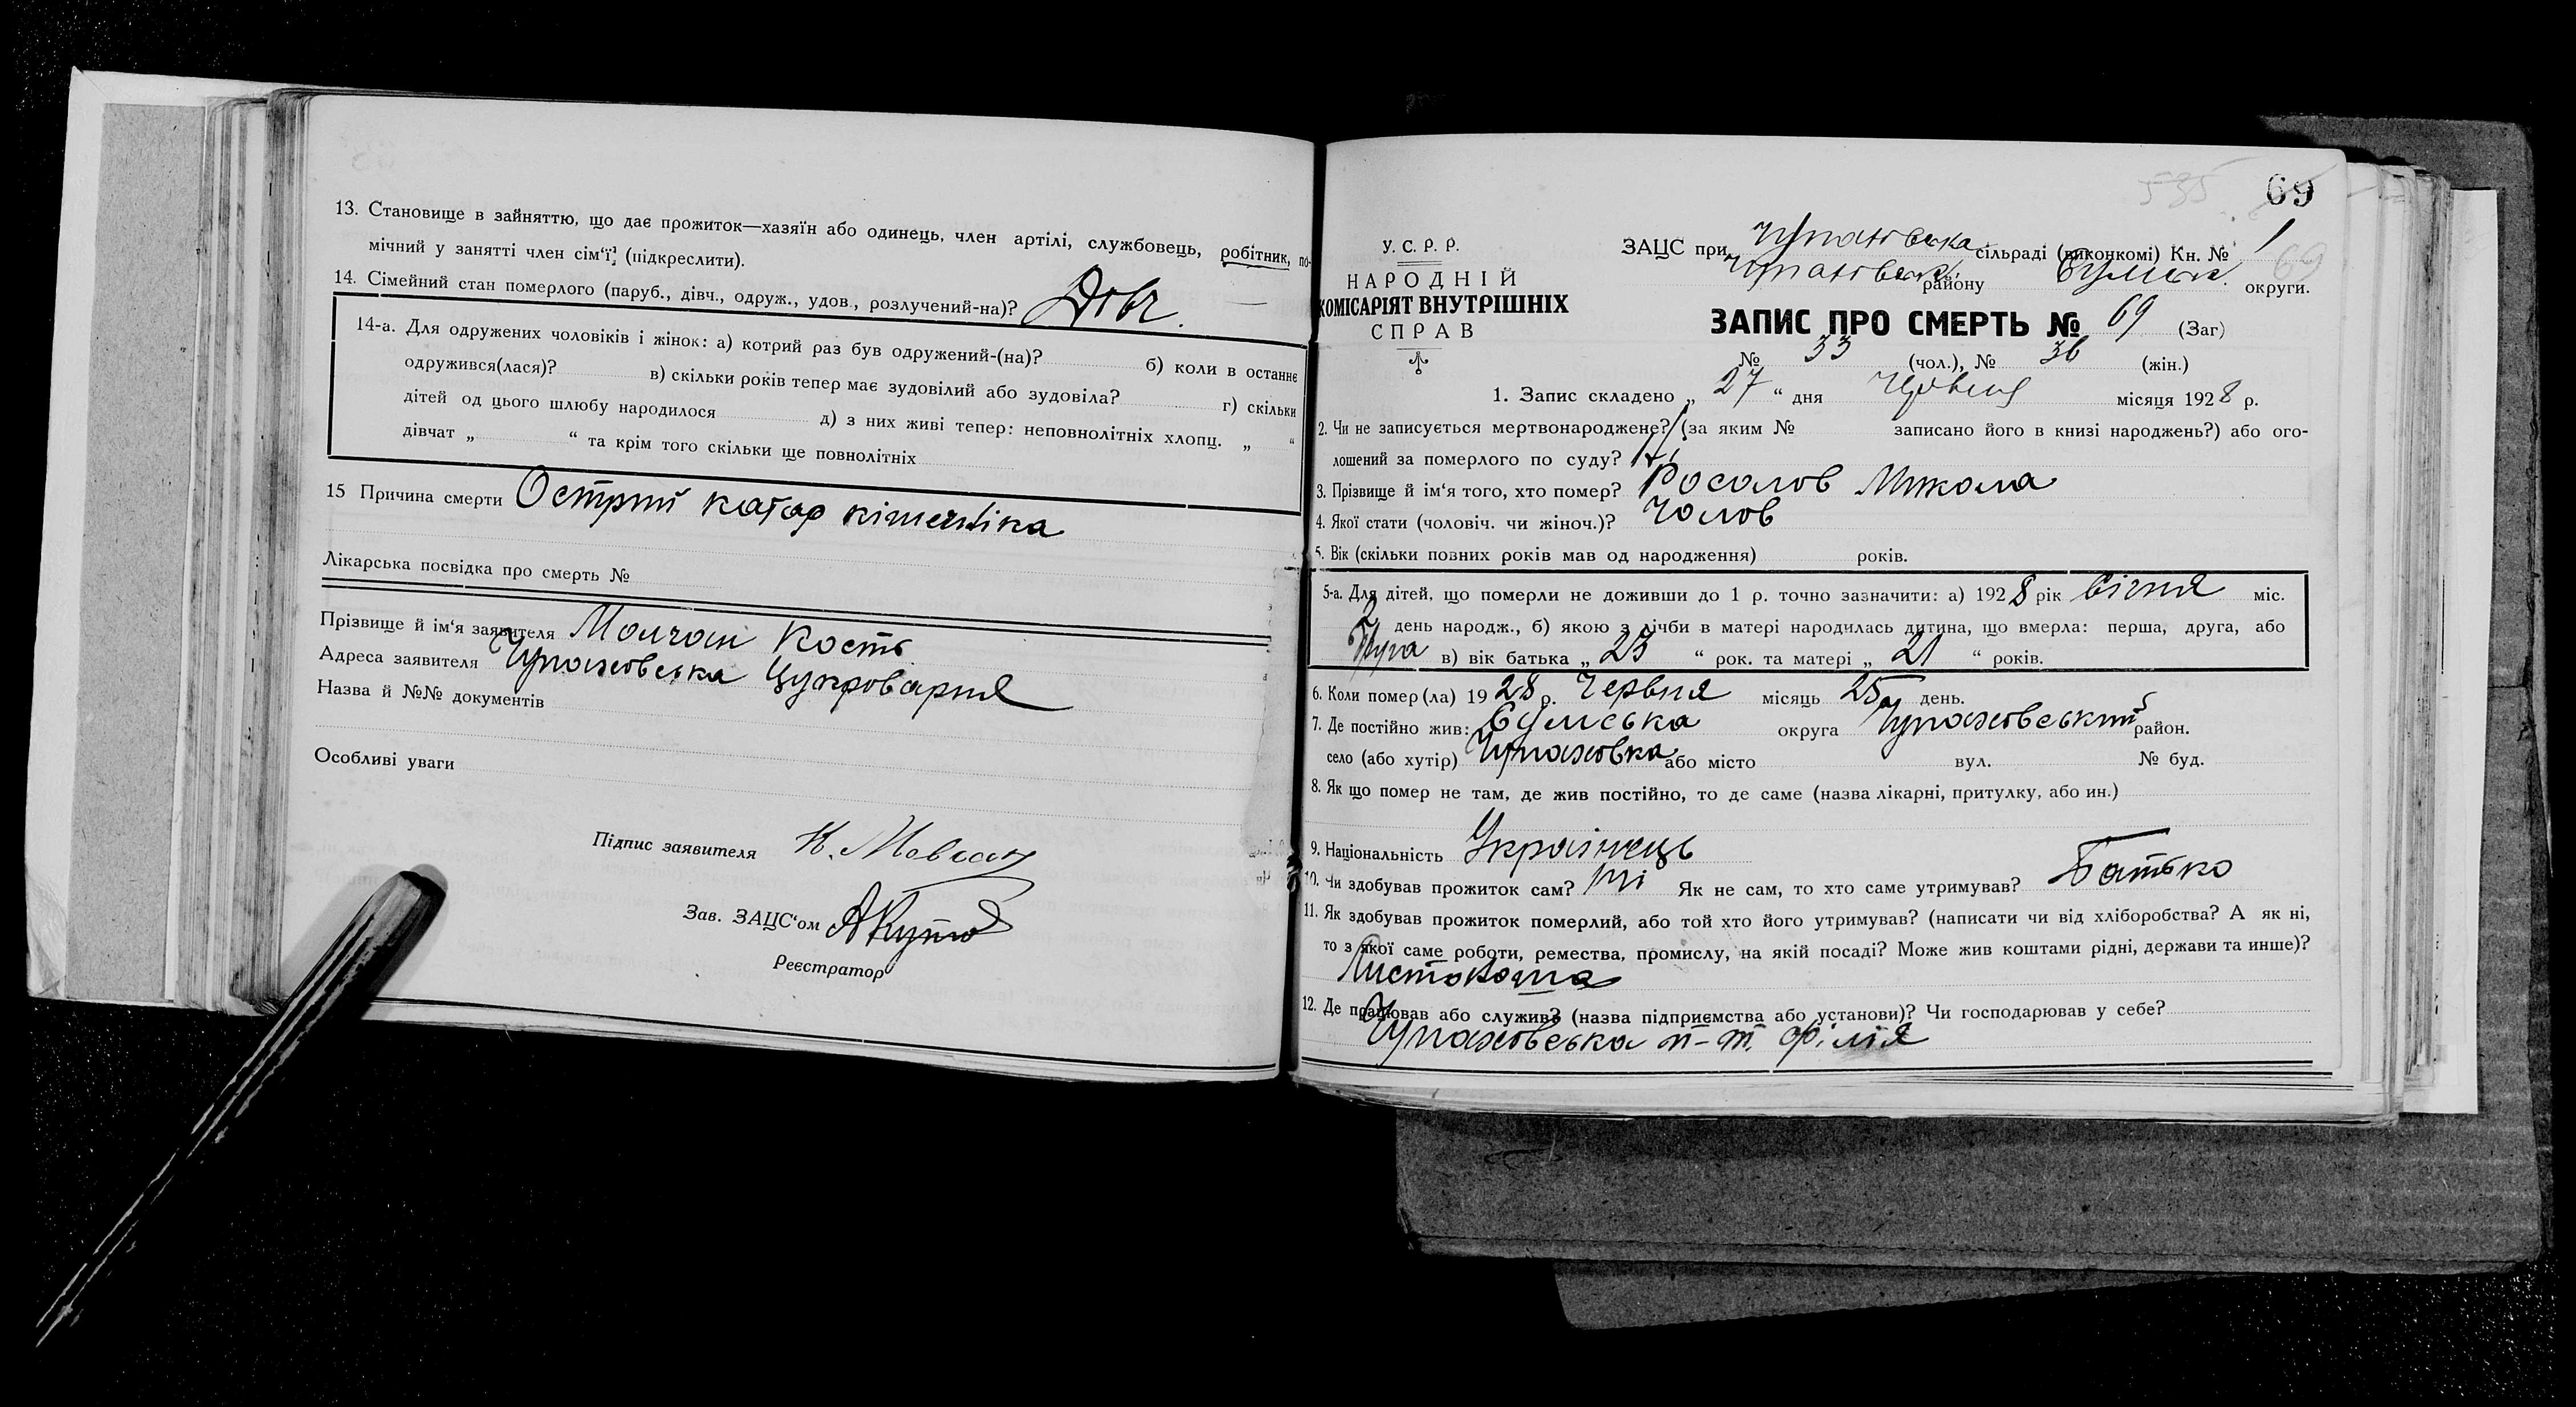 13. Становище в зайняттю, що дає прожиток—хазяїн або одинець, член артілі, службовець, робітник, по-
мічний у занятті член сім‘ї; (підкреслити).
14. Сімейний стан померлого (паруб., дівч., одруж., удов., розлучений-на)?
14-а. Для одружених чоловіків і жінок: а) котрий раз був одружений-(на)? б) коли в останнє
одружився(лася)? в) скільки років тепер має зудовілий або зудовіла? г) скільки
дітей од цього шлюбу народилося д) з них живі тепер: неповнолітніх хлопц. „ “
дівчат „ “ та крім того скільки ще повнолітніх
15 Причина смерти Острий катар кішечніка
Лікарська посвідка про смерть №
Прізвище й ім‘я заявителя Молчан Кость
Адреса заявителя Чупаховська Цукроварня
Назва й №№ документів
Особливі уваги
Підпис заявителя К. Молчан
Зав. ЗАЦС‘ом
Реєстратор
535 69
У. С. Р. Р.
НАРОДНІЙ
КОМІСАРІЯТ ВНУТРІШНІХ
СПРАВ
ЗАЦС при Чупаховська сільраді (виконкомі) Кн. № 1
69
Чупаховськ. району Сумськ. округи.
ЗАПИС ПРО СМЕРТЬ № 69 (Заг)
№ 33 (чол.), № 36 (жін.)
1. Запис складено „ 27 “ дня Червня місяця 1928 р.
2. Чи не записується мертвонароджене? (за яким № записано його в книзі народжень?) або ого-
лошений за померлого по суду? Ні
3. Прізвище й ім‘я того, хто помер? Росалов Микола
4. Якої стати (чоловіч. чи жіноч.)? Чолов
5. Вік (скільки повних років мав од народження) років.
5-а. Для дітей, що померли не доживши до 1 р. точно зазначити: а) 1928 рік Січня міс.
2 день народж., б) якою з лічби в матері народилась дитина, що вмерла: перша, друга, або
Друга в) вік батька „ 23 “ рок. та матері „ 21 “ років.
6. Коли помер(ла) 1928 р. Червня місяць 25 день.
7. Де постійно жив: Сумська округа Чупаховський район.
село (або хутір) Чупаховка або місто вул. № буд.
8. Як що помер не там, де жив постійно, то де саме (назва лікарні, притулку, або ин.)
9. Національність Українець
10. Чи здобував прожиток сам? Ні Як не сам, то хто саме утримував? Батько
11. Як здобував прожиток померлий, або той хто його утримував? (написати чи від хліборобства? А як ні,
то з якої саме роботи, ремества, промислу, на якій посаді? Може жив коштами рідні, держави та инше)?
Листоноша
12. Де працював або служив? (назва підприємства або установи)? Чи господарював у себе?
Чупаховська п-т. філія